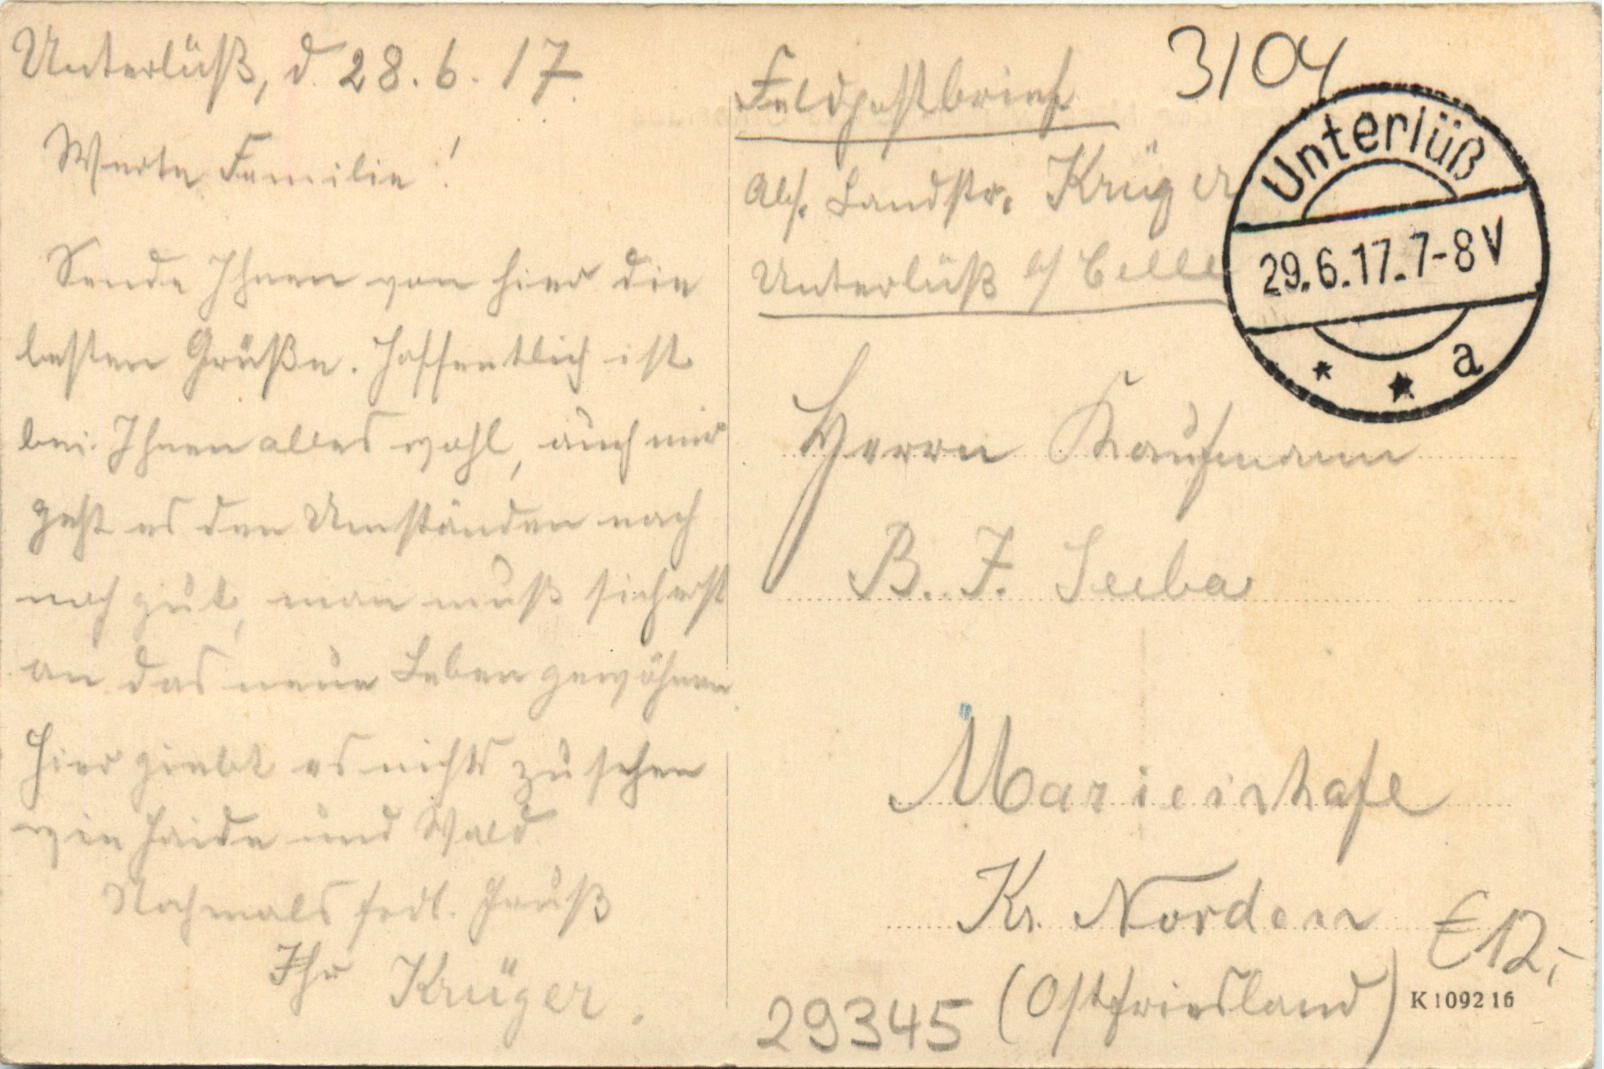 Unterlüß, d. 28.6.17.
Werte Familie!
Sende Ihnen von hier die
besten Grüße. Hoffentlich ist
bei Ihnen alles wohl, auch mir
geht es den Umständen nach
noch gut, man muß sich erst
an das neue Leben gewöhnen
Hier giebt es nichts zu sehen
wie Haide und Wald
Nochmals frdl. Gruß
Ihr Krüger.
Feldpostbrief
3/04
Abs. Landstr. Krüger
Unterlüß b/ Celle
Unterlüß
29.6.17.7-8V
* * a
Herrn Kaufmann
B. F. Seeba
Marienhafe
Kr. Norden
(Ostfriesland)
€12,-
29345
K 1092 16